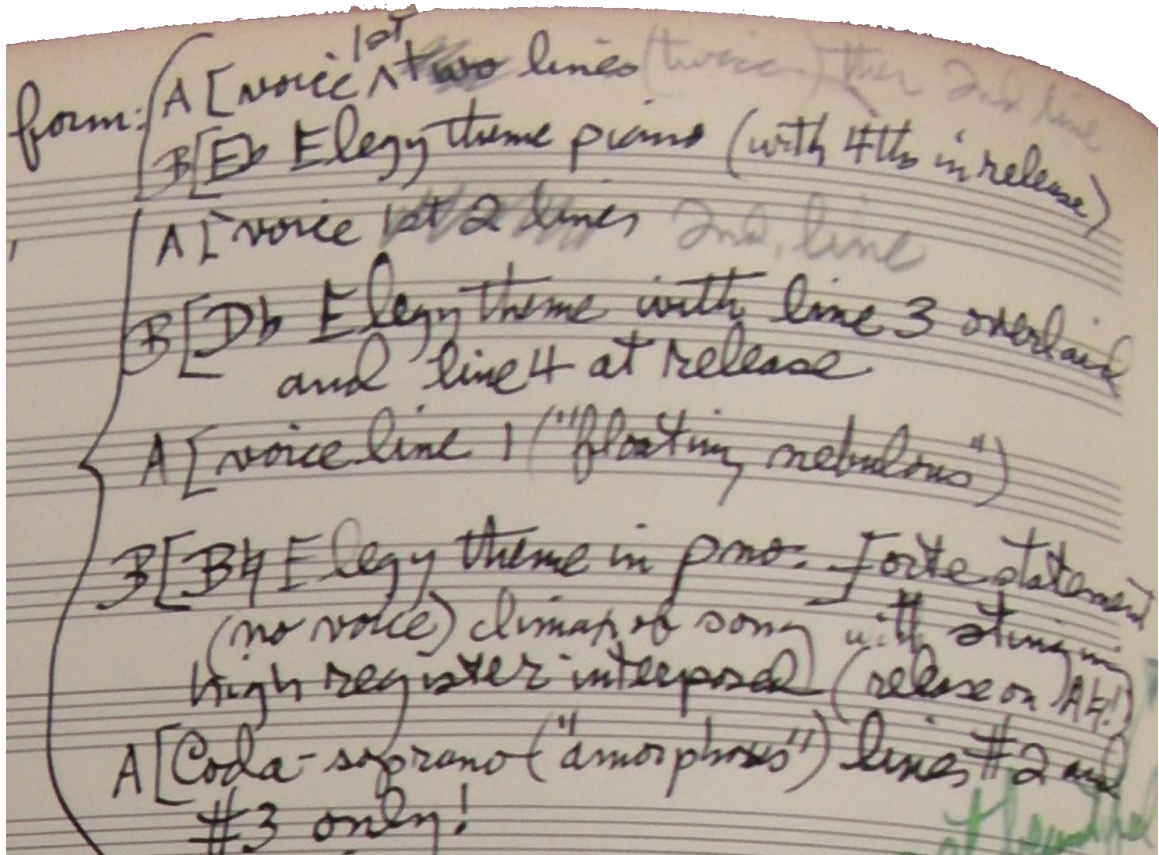 form: A [voice 1st two lines (twice) then 2nd line
B [E♭ Elegy theme piano (with 4ths in release)
A [voice 1st 2 lines 2nd line
B [D♭ Elegy theme with line 3 overlaid
and line 4 at release
A [voice line 1 ("floating, nebulous")
B [B♮ Elegy theme in pno. forte statement
(no voice) climax of song with sting in
high register interposed (release on A♮!)
A [Coda - soprano ("amorphous") lines #2 and
#3 only!
at